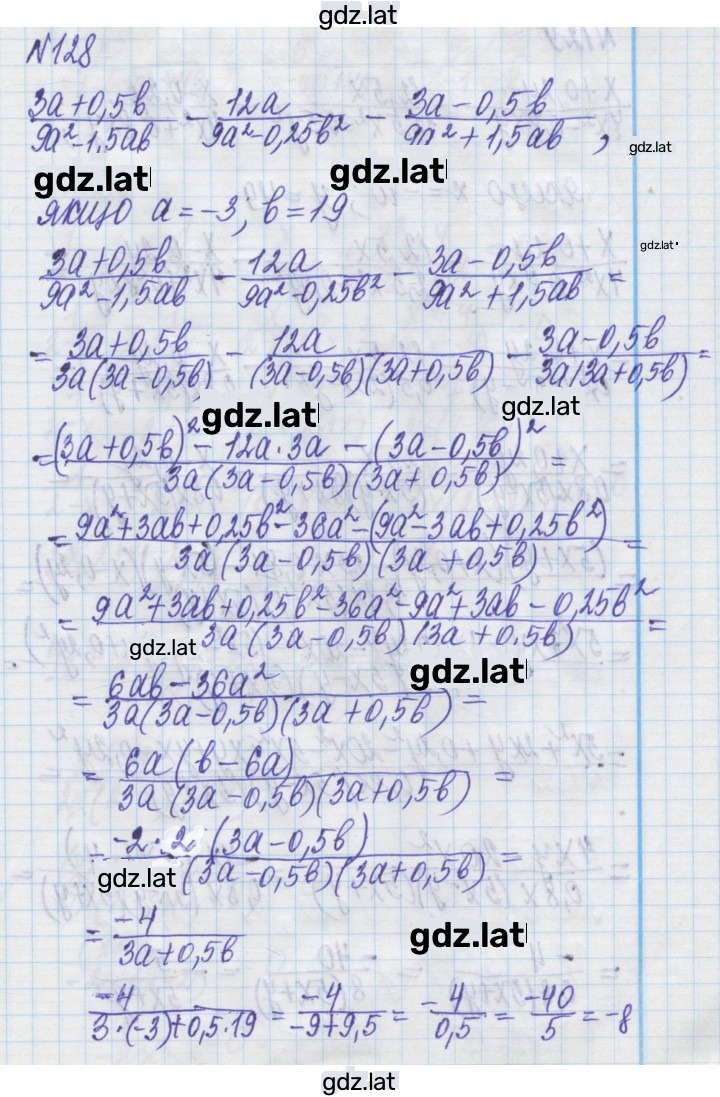 gdz.lat
N128
(3a+0,5b)/(9a²-1,5ab) - 12a/(9a²-0,25b²) - (3a-0,5b)/(9a²+1,5ab) ,
gdz.lat
gdz.lat gdz.lat
якщо a=-3, b=19
(3a+0,5b)/(9a²-1,5ab) - 12a/(9a²-0,25b²) - (3a-0,5b)/(9a²+1,5ab) =
gdz.lat
= (3a+0,5b)/(3a(3a-0,5b)) - 12a/((3a-0,5b)(3a+0,5b)) - (3a-0,5b)/(3a(3a+0,5b)) =
gdz.lat gdz.lat
= ((3a+0,5b)²-12a·3a-(3a-0,5b)²)/(3a(3a-0,5b)(3a+0,5b)) =
= (9a²+3ab+0,25b²-36a²-(9a²-3ab+0,25b²))/(3a(3a-0,5b)(3a+0,5b)) =
= (9a²+3ab+0,25b²-36a²-9a²+3ab-0,25b²)/(3a(3a-0,5b)(3a+0,5b)) =
gdz.lat gdz.lat
= (6ab-36a²)/(3a(3a-0,5b)(3a+0,5b)) =
= 6a(b-6a)/(3a(3a-0,5b)(3a+0,5b)) =
= -2·2(3a-0,5b)/((3a-0,5b)(3a+0,5b)) =
gdz.lat
= -4/(3a+0,5b)
gdz.lat
-4/(3·(-3)+0,5·19) = -4/(-9+9,5) = -4/0,5 = -40/5 = -8
gdz.lat